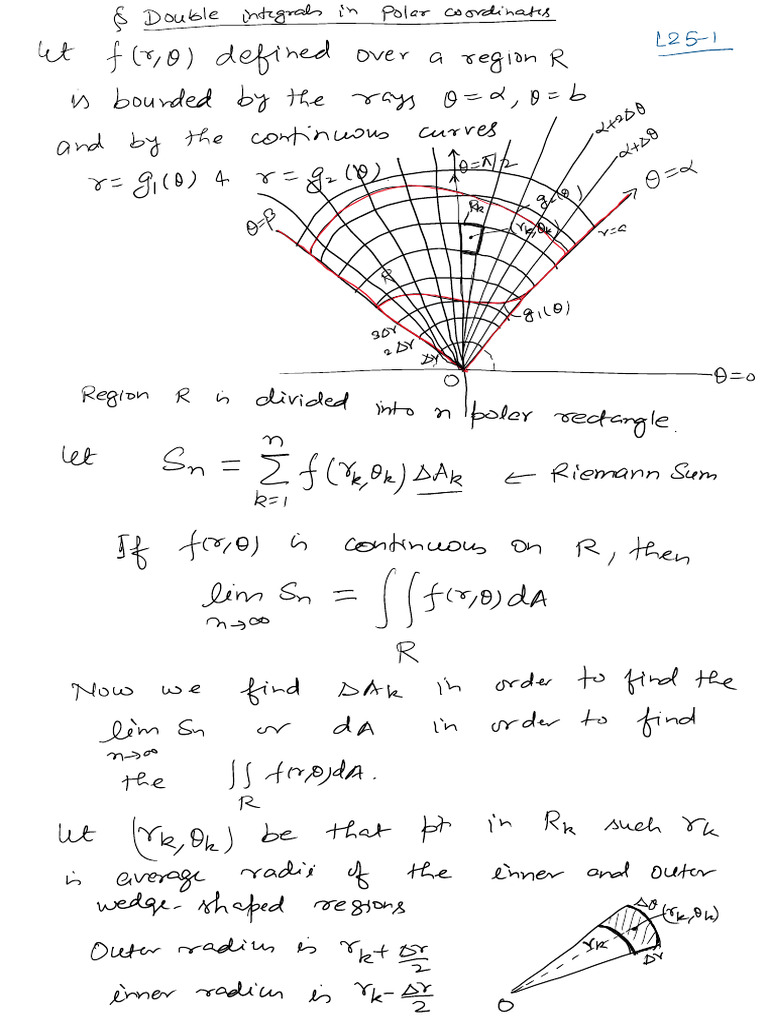 § Double integrals in Polar coordinates
L25-1
Let f(r,θ) defined over a region R
is bounded by the rays θ=α, θ=b
and by the continuous curves
r=g₁(θ) & r=g₂(θ)
α+2Δθ
α+Δθ
θ=π/2
θ=α
θ=β
g₂(θ)
Rk
(rk,θk)
r=a
R
g₁(θ)
3Δr
2Δr
Δr
O
θ=0
Region R is divided into n polar rectangle.
Let Sn = n Σ k=1 f(rk,θk) ΔAk ← Riemann Sum
If f(r,θ) is continuous on R, then
lim n→∞ Sn = ∬R f(r,θ)dA
Now we find ΔAk in order to find the
lim n→∞ Sn or dA in order to find
the ∬R f(r,θ)dA.
Let (rk,θk) be that pt in Rk such rk
is average radii of the inner and outer
wedge-shaped regions
Outer radius is rk+Δr/2
inner radius is rk-Δr/2
Δθ
(rk,θk)
rk
Δr
O